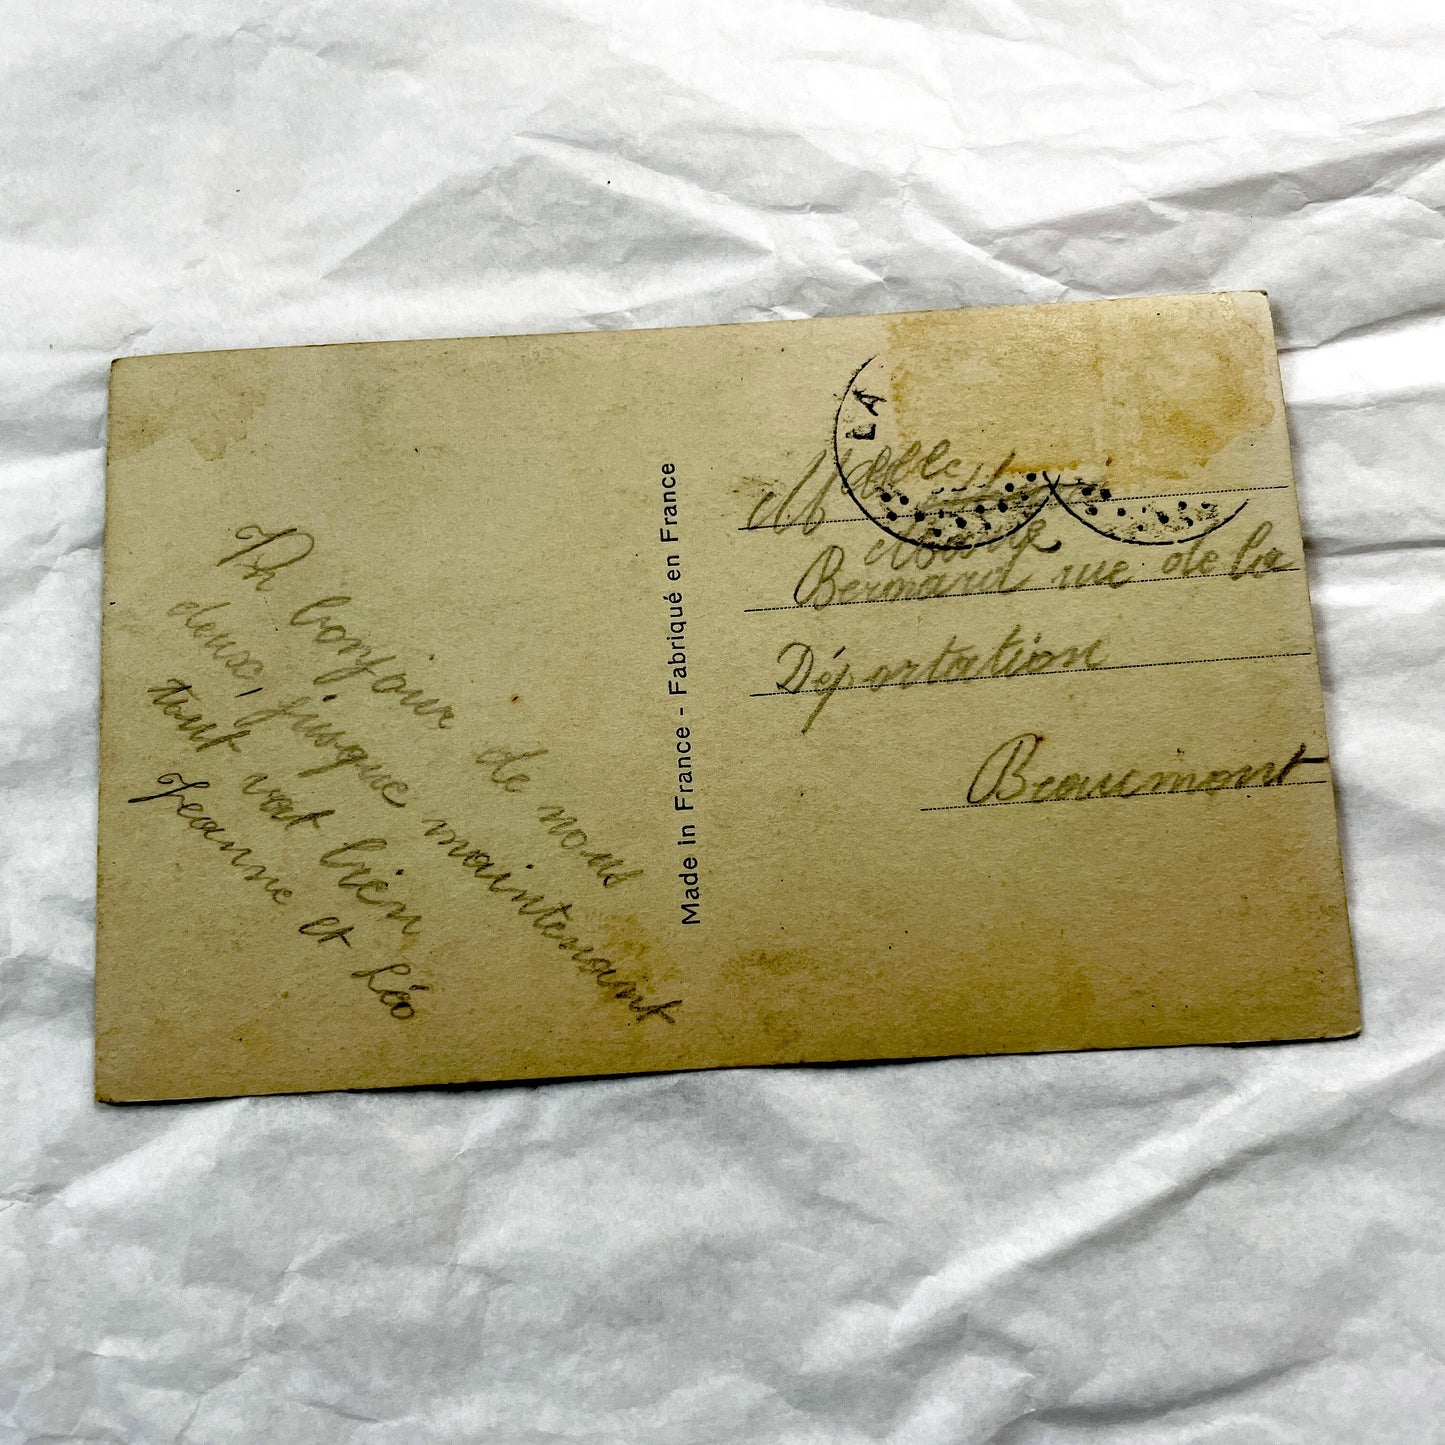 bonjour de nous
deux, jusque maintenant
tout vat bien
Jeanne et Léo
Made in France - Fabriqué en France
LA
Melle
Bernard rue de la
Déportation
Beaumont